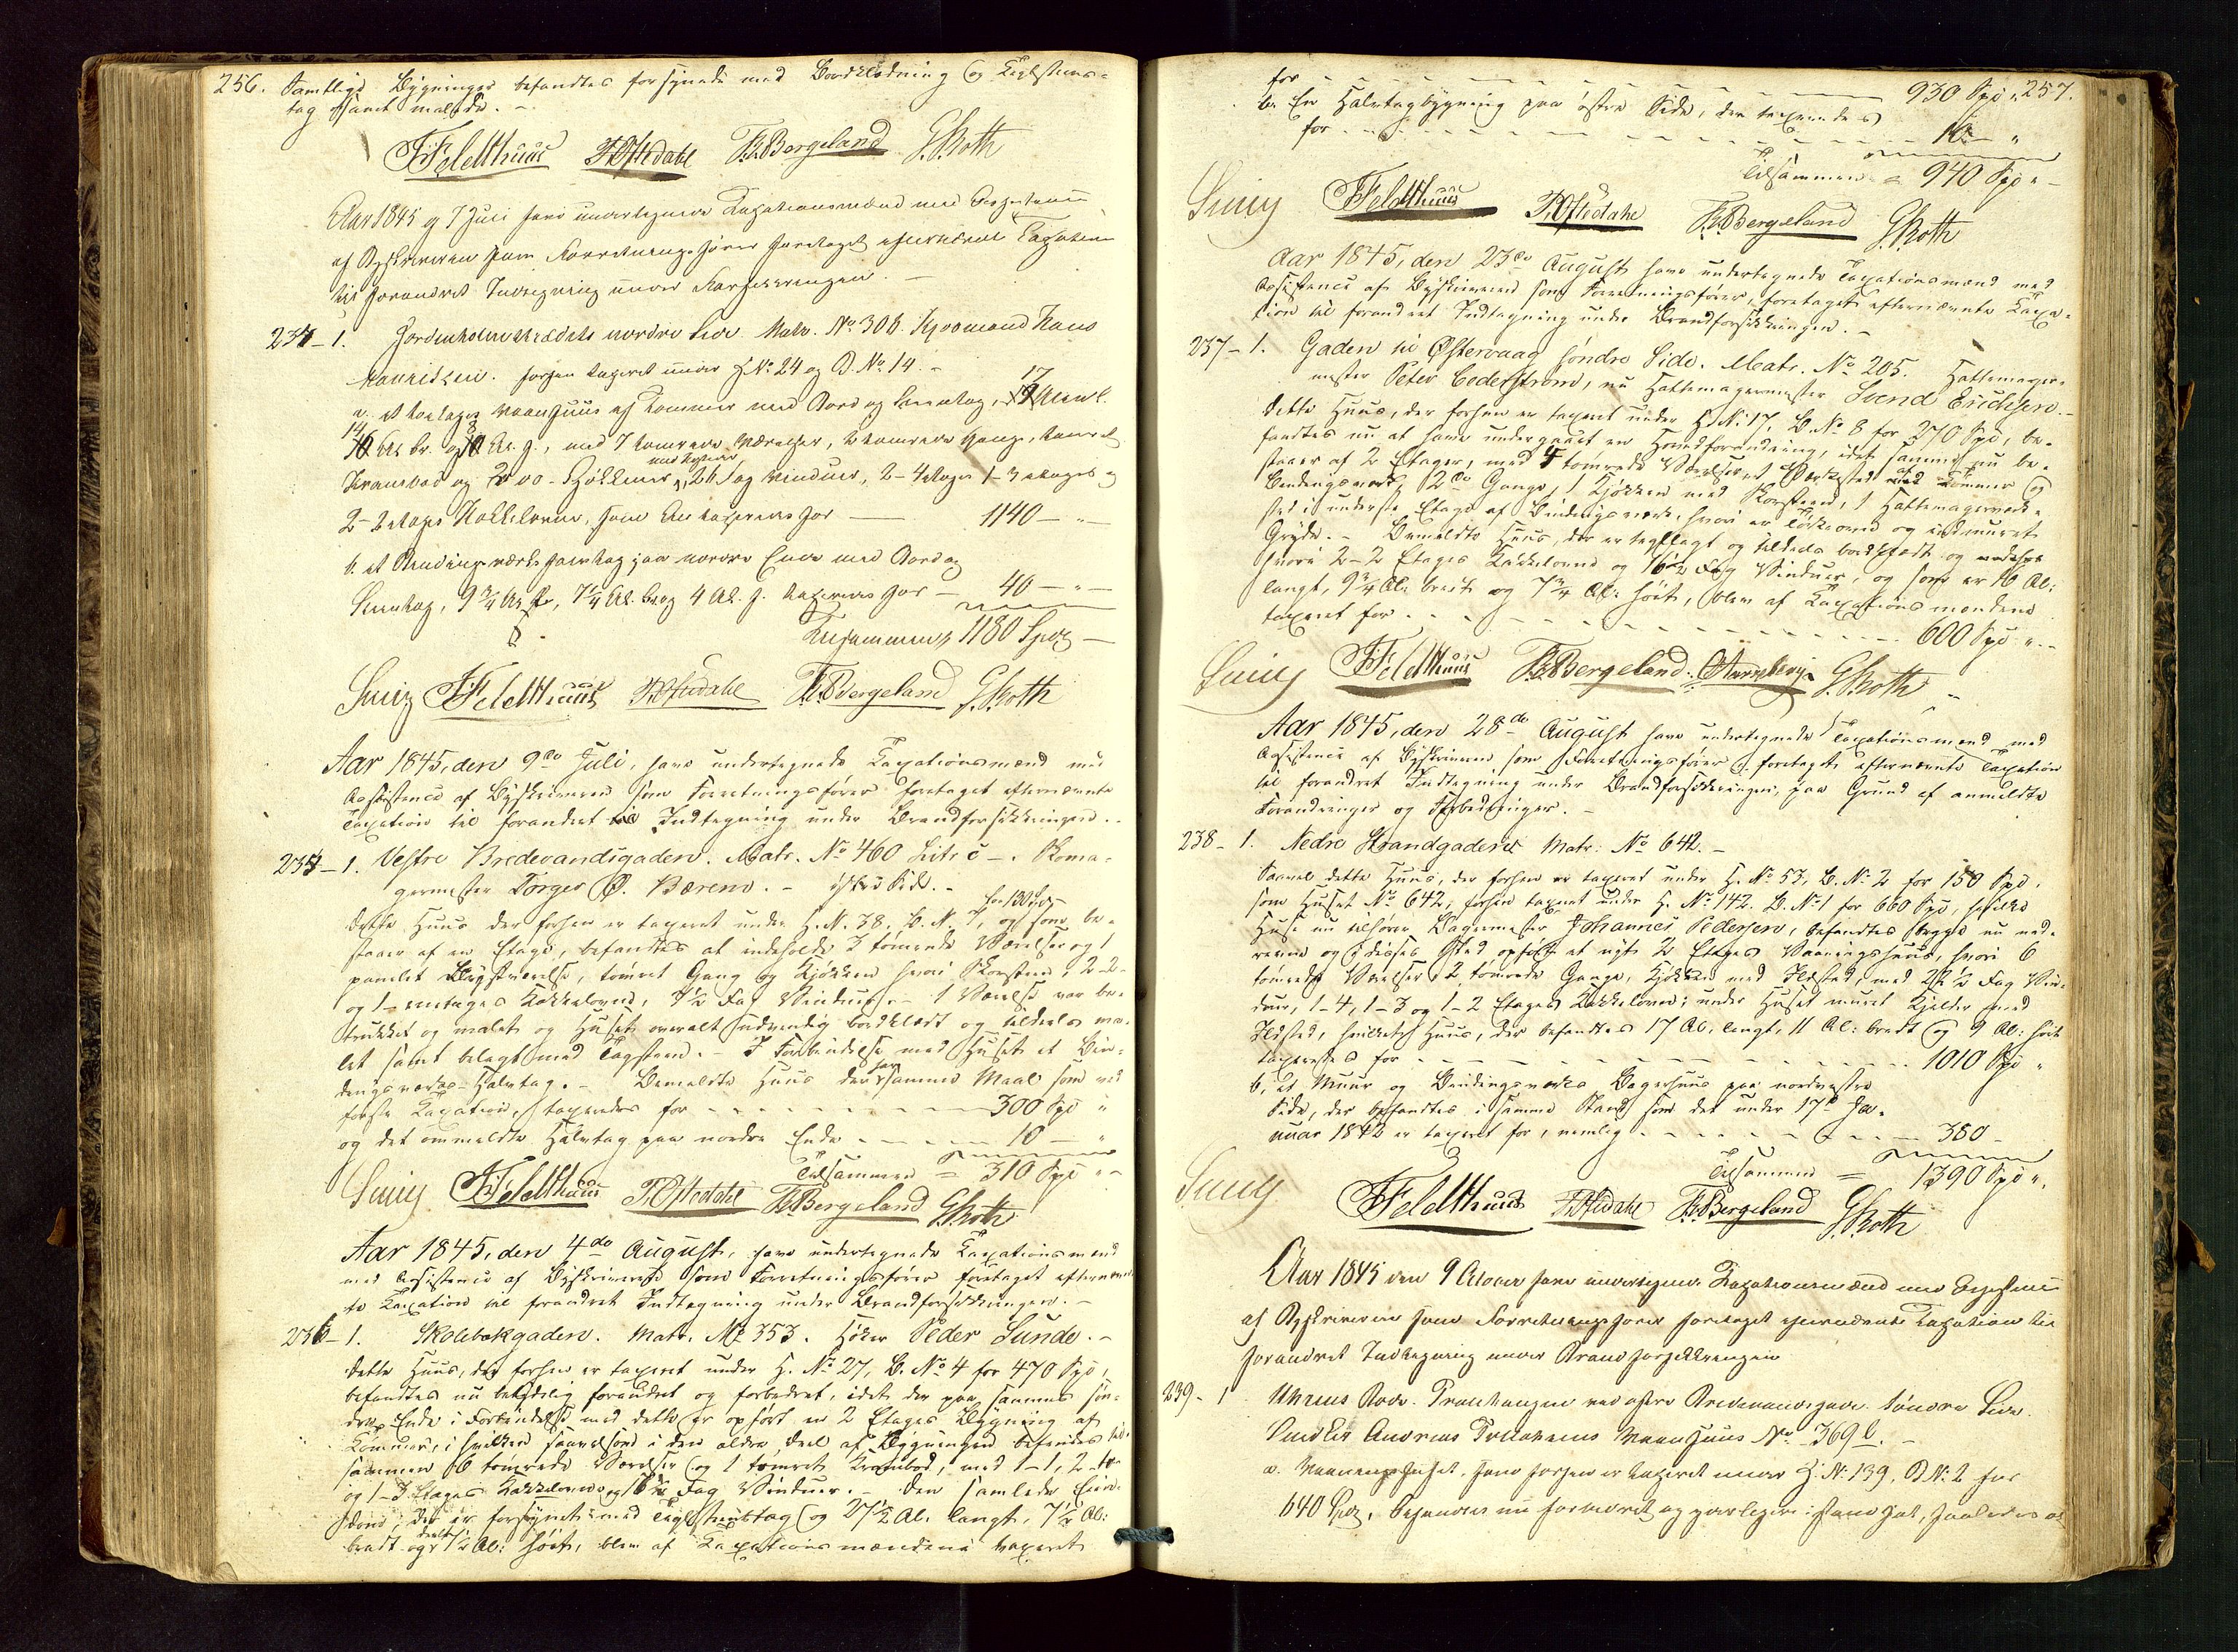 256. Samtlige Bygninger befandtes forsynede med Bordklædning og Teglsteens-
tag samt malede. -
F Feldthuus T. Oftedahl T. Bergeland G. Roth
Aar 1845 og 7 Juli have undertegnede Taxationsmænd med Assistence
af Byskriveren som Forretningsfører foretaget efternævnte Taxation
til forandret Indtegning under Forsikkringen. -
234 - 1. Jordenholmstrædets nordre Side Matr. No 306. Kjøbmand Hans
Mauritzen. forhen taxeret under H. No 24 og B. No 14. -
a. et to Etages Vaaningshuus af Tømmer med Bord og Steentag, 17 Alen l.
Al. br. og Al. h., med 7 tømrede Værelser, 2 tømrede Gange, tømret
Krambod og Kjøkkener, 26 Fag Vinduer, 2 - 4 Etages 1 - 3 Etages og
2 - 2 Etages Kakkelovne, som taxeredes for 1140 - "
b. et Bindingsværks paa nordre Ende med Bord og
Steentag, 9 3/4 Al. l., 7 1/4 Al. br. og 4 Al. h. taxeredes for - 40 - " -
Tilsammen 1180 Spd -
F Feldthuus T. Oftedahl T. Bergeland G. Roth
Aar 1845, den 9de Juli, have undertegnede Taxationsmænd med
Assistence af Byskriveren som Forretningsfører foretaget efternævnte
Taxation til forandret Indtegning under Brandforsikkringen. -
235 - 1. Vestre Bredevandsgaden. Matr. No 460 Litr c - . Skoma-
germester Torger Ø. Bærem. - østre Side. -
for 130 Spd
Dette Huus der forhen er taxeret under H. N. 38, B. N. 1, og som be-
staaer af en Etage, befandtes at indeholde 3 tømrede Værelser og 1
panelet Bygværelse, tømret Gang og Kjøkken hvori Skorsteen, 2 - 2-
og 1 - eenetages Kakkelovne, Fag Vinduer. - 1 Værelse var be-
trukket og malet og Huset overalt udvendig bordklædt og tildeels ma-
let samt belagt med Tagsteen. - I Forbindelse med Huset et Bin-
dingsværks-Halvtag. - Bemeldte Huus der har samme Maal som ved
første Taxation, taxeredes for - - - - 300 Spd "
og det ommeldte Halvtag paa nordre Ende - - - - 10 - "
Tilsammen = 310 Spd " -
F Feldthuus T. Oftedahl T. Bergeland G. Roth
Aar 1845, den 4de August, have undertegnede Taxationsmænd
med Assistence af Byskriveren som Forretningsfører foretaget efternævn-
te Taxation til forandret Indtegning under Brandforsikkringen. -
236 - 1. Skolebækgaden. Matr. No 353. Høker Peder Sunde. -
Dette Huus, der forhen er taxeret under H. No 27, B. No 4 for 470 Spd,
befandtes nu betydelig forandret og forbedret, idet der paa sammes søn-
dre Ende i Forbindelse med dette er opført en 2 Etages Bygning af
Tømmer, i hvilken saavelsom i den ældre Deel af Bygningen befandtes til-
sammen 6 tømrede Værelser og 1 tømret Krambod, med 1 - 1, 2 - to
og 1 - 3 Etages Kakkelovne og Fag Vinduer. - Den samlede Eien-
dom, der er forsynet med Teglsteenstag og 27 1/2 Al. langt, 7 1/2 Al:
bredt og Al: høit, blev af Taxationsmændene taxeret
for - - - - 930 Spd " 257.
b. En Halvtagbygning paa østre Side, der taxeredes
for - - - - 10 - "
Tilsammen = 940 Spd " -
F Feldthuus T. Oftedahl T. Bergeland G. Roth
Aar 1845, den 23de August have undertegnede Taxationsmænd med
Assistence af Byskriveren som Forretningsfører, foretaget efternævnte Taxa-
tion til forandret Indtegning under Brandforsikkringen. -
237 - 1. Gaden til Østervaag søndre Side. Matr. No 205. Hattemager-
mester Peter Cederstrøm, nu Hattemagermester Svend Erichsen. -
Dette Huus, der forhen er taxeret under H. No 17, B. No 8 for 270 Spd, be-
fandtes nu at have undergaaet en Hovedforandring, idet samme nu be-
staaer af 2 Etager, med 4 tømrede Værelser, 1 Værksted af Tømmer og
Bindingsværk, 2de Gange, 1 Kjøkken med Skorsteen, 1 Hattemagerværk-
sted i underste Etage af Bindingsværk, hvori er Tørkeovn og indmuret
Gryde. - Bemeldte Huus, der er teglt lagt og tildeels bordklædt og
hvori 2 - 2 Etages Kakkelovne og 16 1/2 Fag Vinduer, og som er 16 Al:
langt, 9 3/4 Al: bredt og 7 3/4 Al: høit, blev af Taxationsmændene
taxeret for - - - - 600 Spd " -
F Feldthuus T. Bergeland. G. Roth
Aar 1845, den 28de August have undertegnede Taxationsmænd med
Assistence af Byskriveren som Forretningsfører foretaget efternævnte Taxation
til forandret Indtegning under Brandforsikkringen, paa Grund af anmeldte
Forandringer og Forbedringer. -
238 - 1. Nedre Strandgade Matr: No 642. -
Saavel dette Huus, der forhen er taxeret under H. No 53, B. No 2 for 150 Spd,
som Huset No 642, forhen taxeret under H. No 142. B. No 1 for 660 Spd, hvilke
Huse nu tilhører Bagermester Johannes Pedersen, befandtes begge nu ned-
revne og i disses Sted opført et nyt 2 Etages Vaaningshuus, hvori 6
tømrede Værelser, 2 tømrede Gange, Kjøkken med Ildsted, med 1/2 Fag Vin-
duer, 1 - 4, 1 - 3 og 1 - 2 Etages Kakkelovne; under Huset muret Kjelder med
Ildsted, hvilket Huus, der befandtes 17 Al. langt, 11 Al: bredt og 9 Al: høit
taxeredes for - - - - 1010 Spd "
b, et Muur og Bindingsværks Bagerhuus paa nordvestre
Side, der befandtes i samme Stand som det under 17de Ja-
nuar 1842 er taxeret for, nemlig - - - - 380 -
Tilsammen = 1390 Spd ".
F Feldthuus T. Oftedahl T. Bergeland G. Roth
Aar 1845 den 9 October have undertegnede Taxationsmænd med Assistence
af Byskriveren som Forretningsfører foretaget efternævnte Taxation til
forandret Indtegning under Brandforsikkringen
239 - 1 ved østre Bredevandsgade søndre Side.
Snedker Andreas Vaanhuus No 369 b. -
a. Vaaningshuset, som forhen er taxeret under H. No 139, B No 2 for
640 Spd, befandtes nu forbedret og i Stand sat, saaledes at